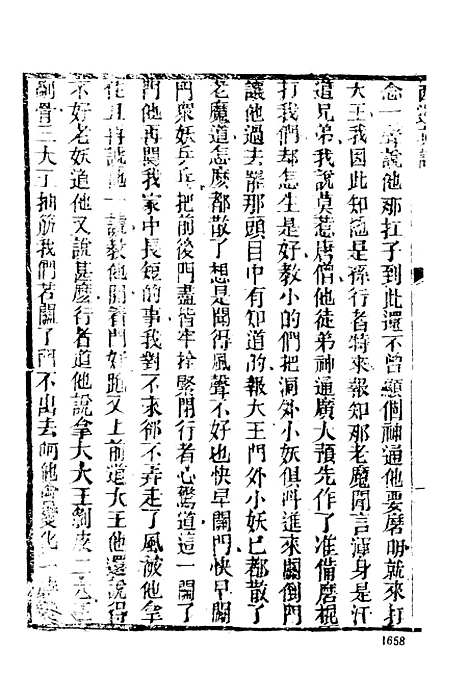 西遊真詮
念一聲說他那扛子到此還不曾顯個神通他要磨明就來打
大王我因此知他是孫行者特來報知那老魔聞言渾身是汗
道兄弟我說莫惹唐僧他徒弟神通廣大預先作了准備磨棍
打我們却怎生是好教小的們把洞外小妖俱呌進來關倒門
讓他過去罷那頭目中有知道的報大王門外小妖已都散了
老魔道怎麽都散了想是聞得風聲不好也快早關門快早關
門衆妖乒乓把前後門盡皆牢拴緊閉行者心驚道這一關了
門他再問我家中長短的事我對不來卻不弄走了風被他拿
住且再諕他一諕教他開着門好跑又上前道大王他還說得
不好老妖道他又說甚麽行者道他說拿大大王剝皮二大王
剮骨三大王抽筋我們若關了門不出去呵他會變化一
1658